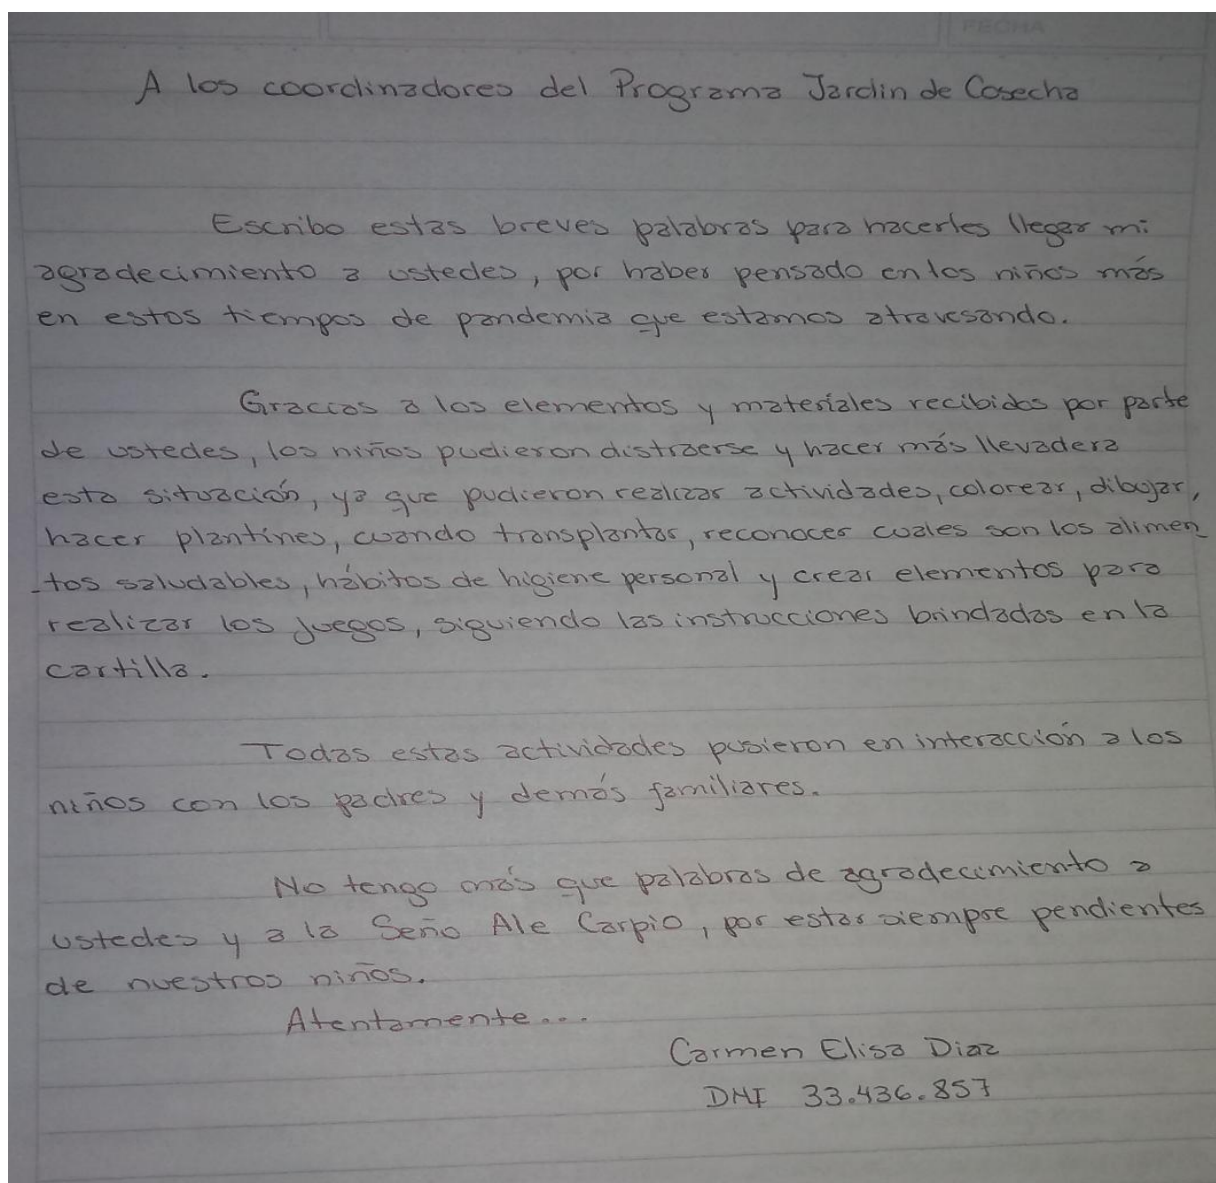 FECHA
A los coordinadores del Programa Jardin de Cosecha
Escribo estas breves palabras para hacerles llegar mi
agradecimiento a ustedes, por haber pensado en los niños más
en estos tiempos de pandemia que estamos atravesando.
Gracias a los elementos y materiales recibidos por parte
de ustedes, los niños pudieron distraerse y hacer más llevadera
esta situación, ya que pudieron realizar actividades, colorear, dibujar,
hacer plantines, cuando transplantar, reconocer cuales son los alimen_
_tos saludables, hábitos de higiene personal y crear elementos para
realizar los juegos, siguiendo las instrucciones brindadas en la
cartilla.
Todas estas actividades pusieron en interacción a los
niños con los padres y demás familiares.
No tengo más que palabras de agradecimiento a
ustedes y a la Seño Ale Carpio, por estar siempre pendientes
de nuestros niños.
Atentamente...
Carmen Elisa Diaz
DNI 33.436.857